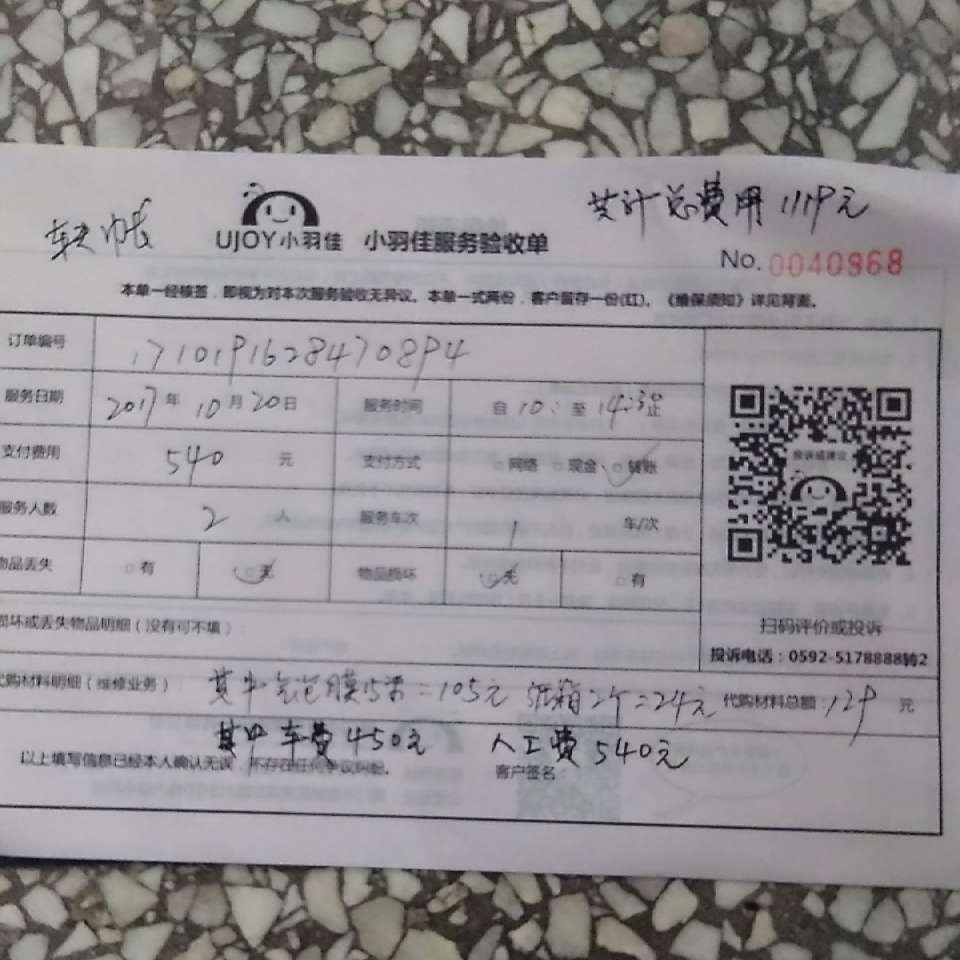 共计总费用1119元
转帐
UJOY小羽佳 小羽佳服务验收单
No.0040968
本单一经核签，即视为对本次服务验收无异议。本单一式两份，客户留存一份(红)。《维保须知》详见背面。
订单编号 1710191628470894
服务日期 2017年10月20日 服务时间 自10：至14:30止
支付费用 540元 支付方式 □网络 □现金 □转账
服务人数 2人 服务车次 1 车/次
物品丢失 □有 □无 物品损坏 □无 □有
投诉或建议
扫码评价或投诉
投诉电话：0592-5178888转2
损坏或丢失物品明细（没有可不填）：
代购材料明细（维修业务） 其中气泡膜15米=105元 纸箱2个=24元 代购材料总额：129元
其中车费450元 人工费540元
以上填写信息已经本人确认无误，不存在任何争议纠纷。 客户签名：